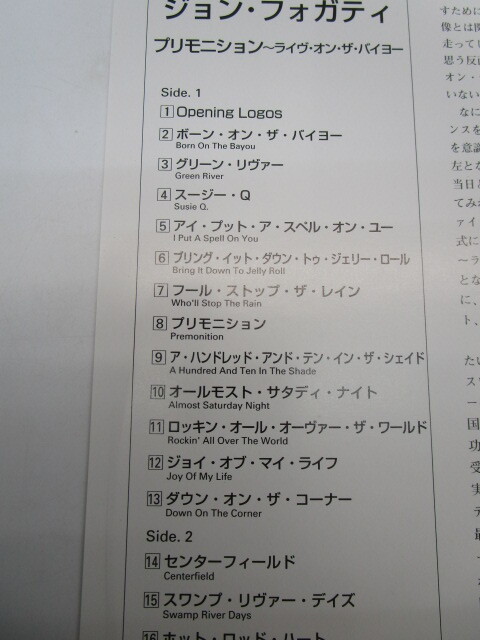 ジョン・フォガティ
プリモニション〜ライヴ・オン・ザ・バイヨー
Side. 1
1 Opening Logos
2 ボーン・オン・ザ・バイヨー
Born On The Bayou
3 グリーン・リヴァー
Green River
4 スージー・Q
Susie Q.
5 アイ・プット・ア・スペル・オン・ユー
I Put A Spell On You
6 ブリング・イット・ダウン・トゥ・ジェリー・ロール
Bring It Down To Jelly Roll
7 フール・ストップ・ザ・レイン
Who'll Stop The Rain
8 プリモニション
Premonition
9 ア・ハンドレッド・アンド・テン・イン・ザ・シェイド
A Hundred And Ten In The Shade
10 オールモスト・サタディ・ナイト
Almost Saturday Night
11 ロッキン・オール・オーヴァー・ザ・ワールド
Rockin' All Over The World
12 ジョイ・オブ・マイ・ライフ
Joy Of My Life
13 ダウン・オン・ザ・コーナー
Down On The Corner
Side. 2
14 センターフィールド
Centerfield
15 スワンプ・リヴァー・デイズ
Swamp River Days
16 ホット・ロッド・ハート
すために
像とは関
走ってい
思う反面
オン・
いない
なに
ンスを
を意識
左とな
当日と
てみれ
ァイ
式に
〜ラ
とな
に、
ト、
たい
スい
ー
国
功
受
実
デ
最